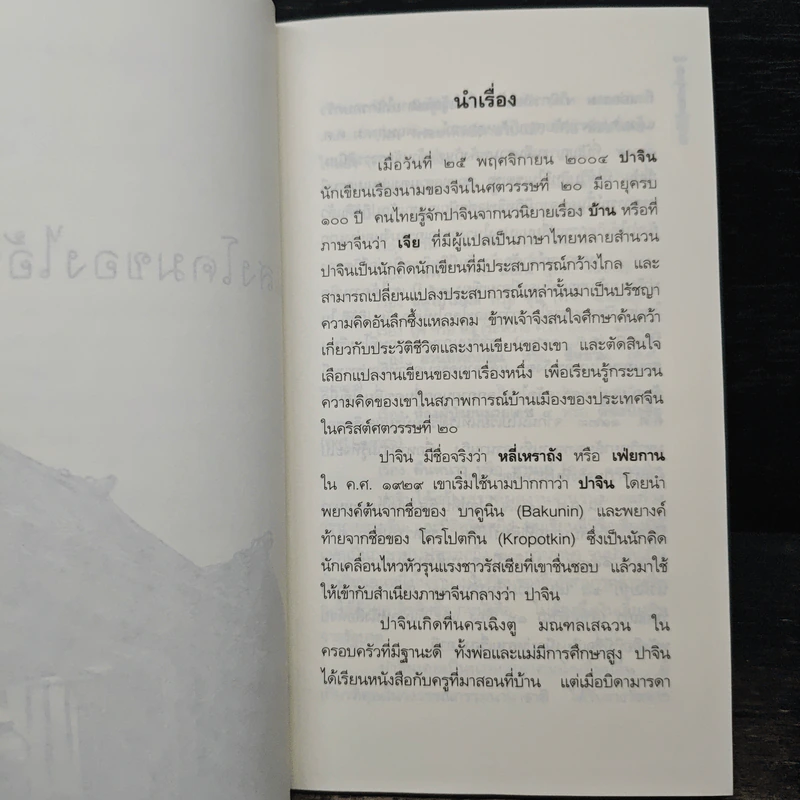 นำเรื่อง
เมื่อวันที่ ๒๕ พฤศจิกายน ๒๐๐๔ ปาจิน
นักเขียนเรืองนามของจีนในศตวรรษที่ ๒๐ มีอายุครบ
๑๐๐ ปี คนไทยรู้จักปาจินจากนวนิยายเรื่อง บ้าน หรือที่
ภาษาจีนว่า เจีย ที่มีผู้แปลเป็นภาษาไทยหลายสำนวน
ปาจินเป็นนักคิดนักเขียนที่มีประสบการณ์กว้างไกล และ
สามารถเปลี่ยนแปลงประสบการณ์เหล่านั้นมาเป็นปรัชญา
ความคิดอันลึกซึ้งแหลมคม ข้าพเจ้าจึงสนใจศึกษาค้นคว้า
เกี่ยวกับประวัติชีวิตและงานเขียนของเขา และตัดสินใจ
เลือกแปลงานเขียนของเขาเรื่องหนึ่ง เพื่อเรียนรู้กระบวน
ความคิดของเขาในสภาพการณ์บ้านเมืองของประเทศจีน
ในคริสต์ศตวรรษที่ ๒๐
ปาจิน มีชื่อจริงว่า หลี่เหราถัง หรือ เฟ่ยกาน
ใน ค.ศ. ๑๙๒๙ เขาเริ่มใช้นามปากกาว่า ปาจิน โดยนำ
พยางค์ต้นจากชื่อของ บาคูนิน (Bakunin) และพยางค์
ท้ายจากชื่อของ โครโปตกิน (Kropotkin) ซึ่งเป็นนักคิด
นักเคลื่อนไหวหัวรุนแรงชาวรัสเซียที่เขาชื่นชอบ แล้วมาใช้
ให้เข้ากับสำเนียงภาษาจีนกลางว่า ปาจิน
ปาจินเกิดที่นครเฉิงตู มณฑลเสฉวน ใน
ครอบครัวที่มีฐานะดี ทั้งพ่อและแม่มีการศึกษาสูง ปาจิน
ได้เรียนหนังสือกับครูที่มาสอนที่บ้าน แต่เมื่อบิดามารดา